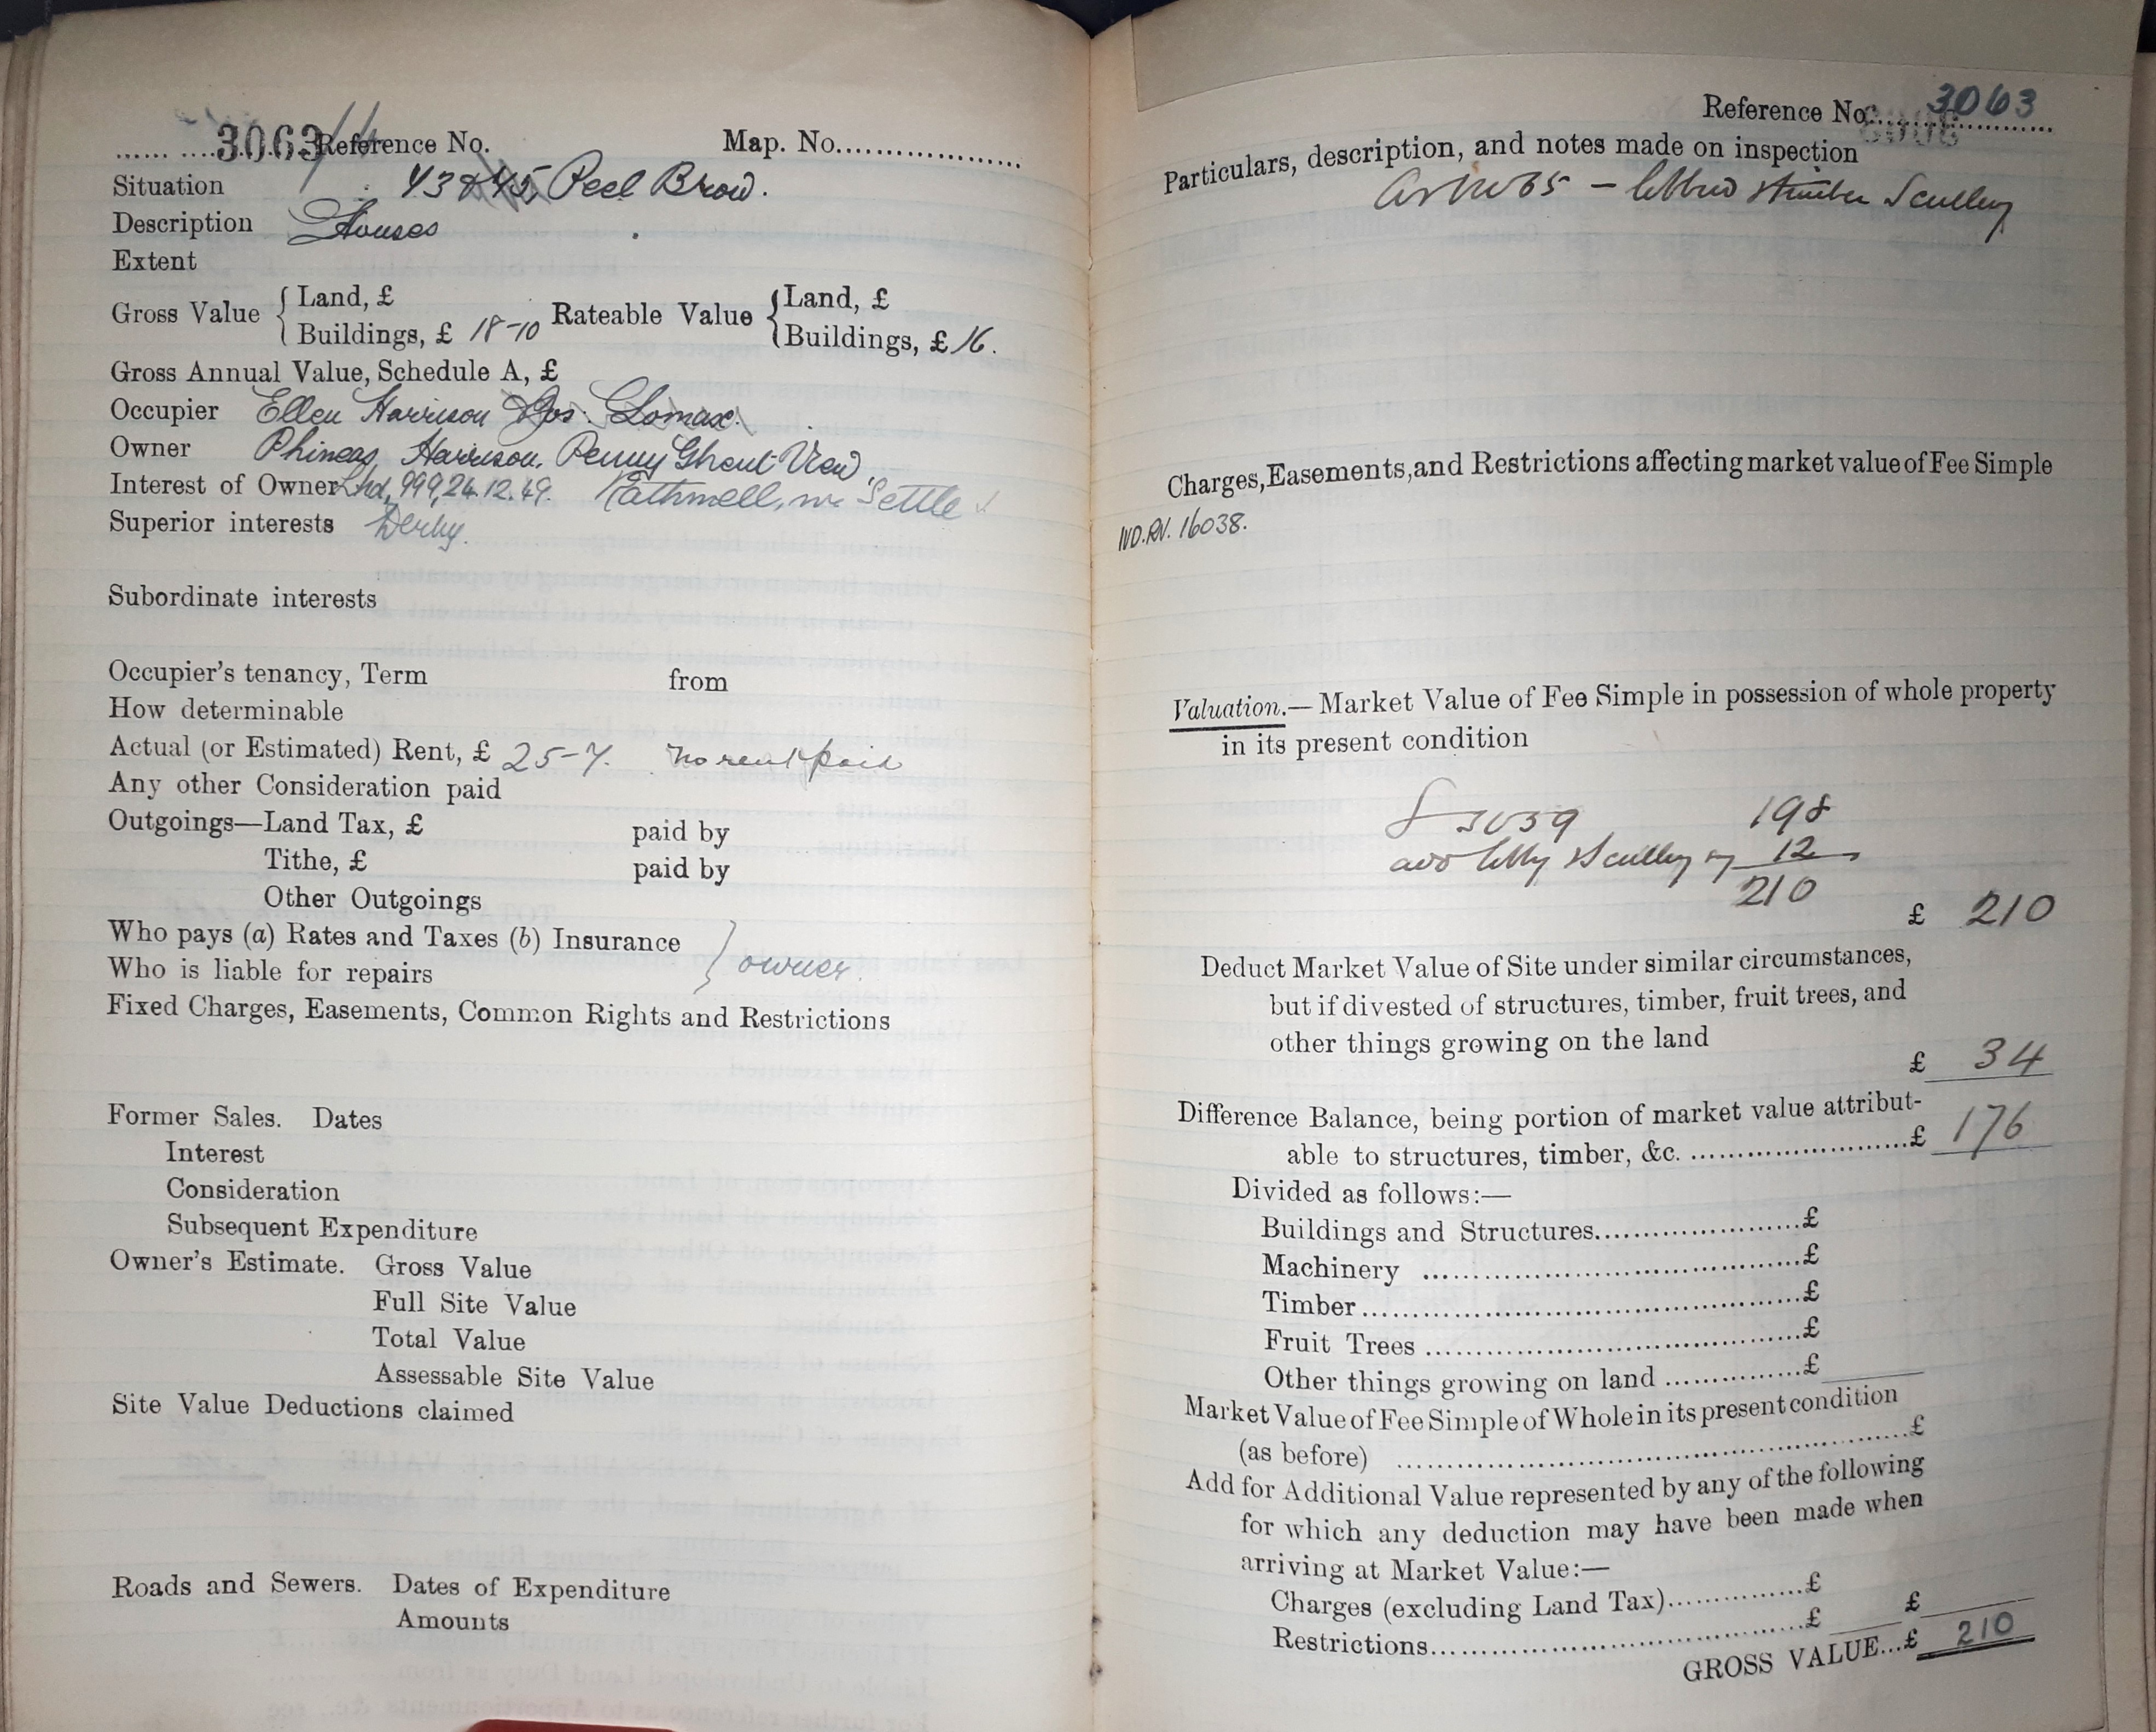 3063 Reference No. Map. No.
Situation 43 & 45 Peel Brow.
Description Houses
Extent
Gross Value { Land, £ Rateable Value { Land, £
Buildings, £ 18-10 Buildings, £ 16.
Gross Annual Value, Schedule A, £
Occupier Ellen Harrison & Jos. Lomax.
Owner Phineas Harrison, Penny Ghent View,
Interest of Owner Lhd, 999, 24.12.49. Rathmell, nr Settle
Superior interests Derby.
Subordinate interests
Occupier's tenancy, Term from
How determinable
Actual (or Estimated) Rent, £ 25-7. no rent paid
Any other Consideration paid
Outgoings—Land Tax, £ paid by
Tithe, £ paid by
Other Outgoings
Who pays (a) Rates and Taxes (b) Insurance } owner.
Who is liable for repairs
Fixed Charges, Easements, Common Rights and Restrictions
Former Sales. Dates
Interest
Consideration
Subsequent Expenditure
Owner's Estimate. Gross Value
Full Site Value
Total Value
Assessable Site Value
Site Value Deductions claimed
Roads and Sewers. Dates of Expenditure
Amounts
Reference No. 3063
Particulars, description, and notes made on inspection
Scullery
Charges, Easements, and Restrictions affecting market value of Fee Simple
IVD.RV. 16038.
Valuation.— Market Value of Fee Simple in possession of whole property
in its present condition
3039 198
Scullery 12
210
£ 210
Deduct Market Value of Site under similar circumstances,
but if divested of structures, timber, fruit trees, and
other things growing on the land
£ 34
Difference Balance, being portion of market value attribut-
able to structures, timber, &c. £ 176
Divided as follows:—
Buildings and Structures £
Machinery £
Timber £
Fruit Trees £
Other things growing on land £
Market Value of Fee Simple of Whole in its present condition
(as before) £
Add for Additional Value represented by any of the following
for which any deduction may have been made when
arriving at Market Value:—
Charges (excluding Land Tax) £
Restrictions £ £
GROSS VALUE...£ 210